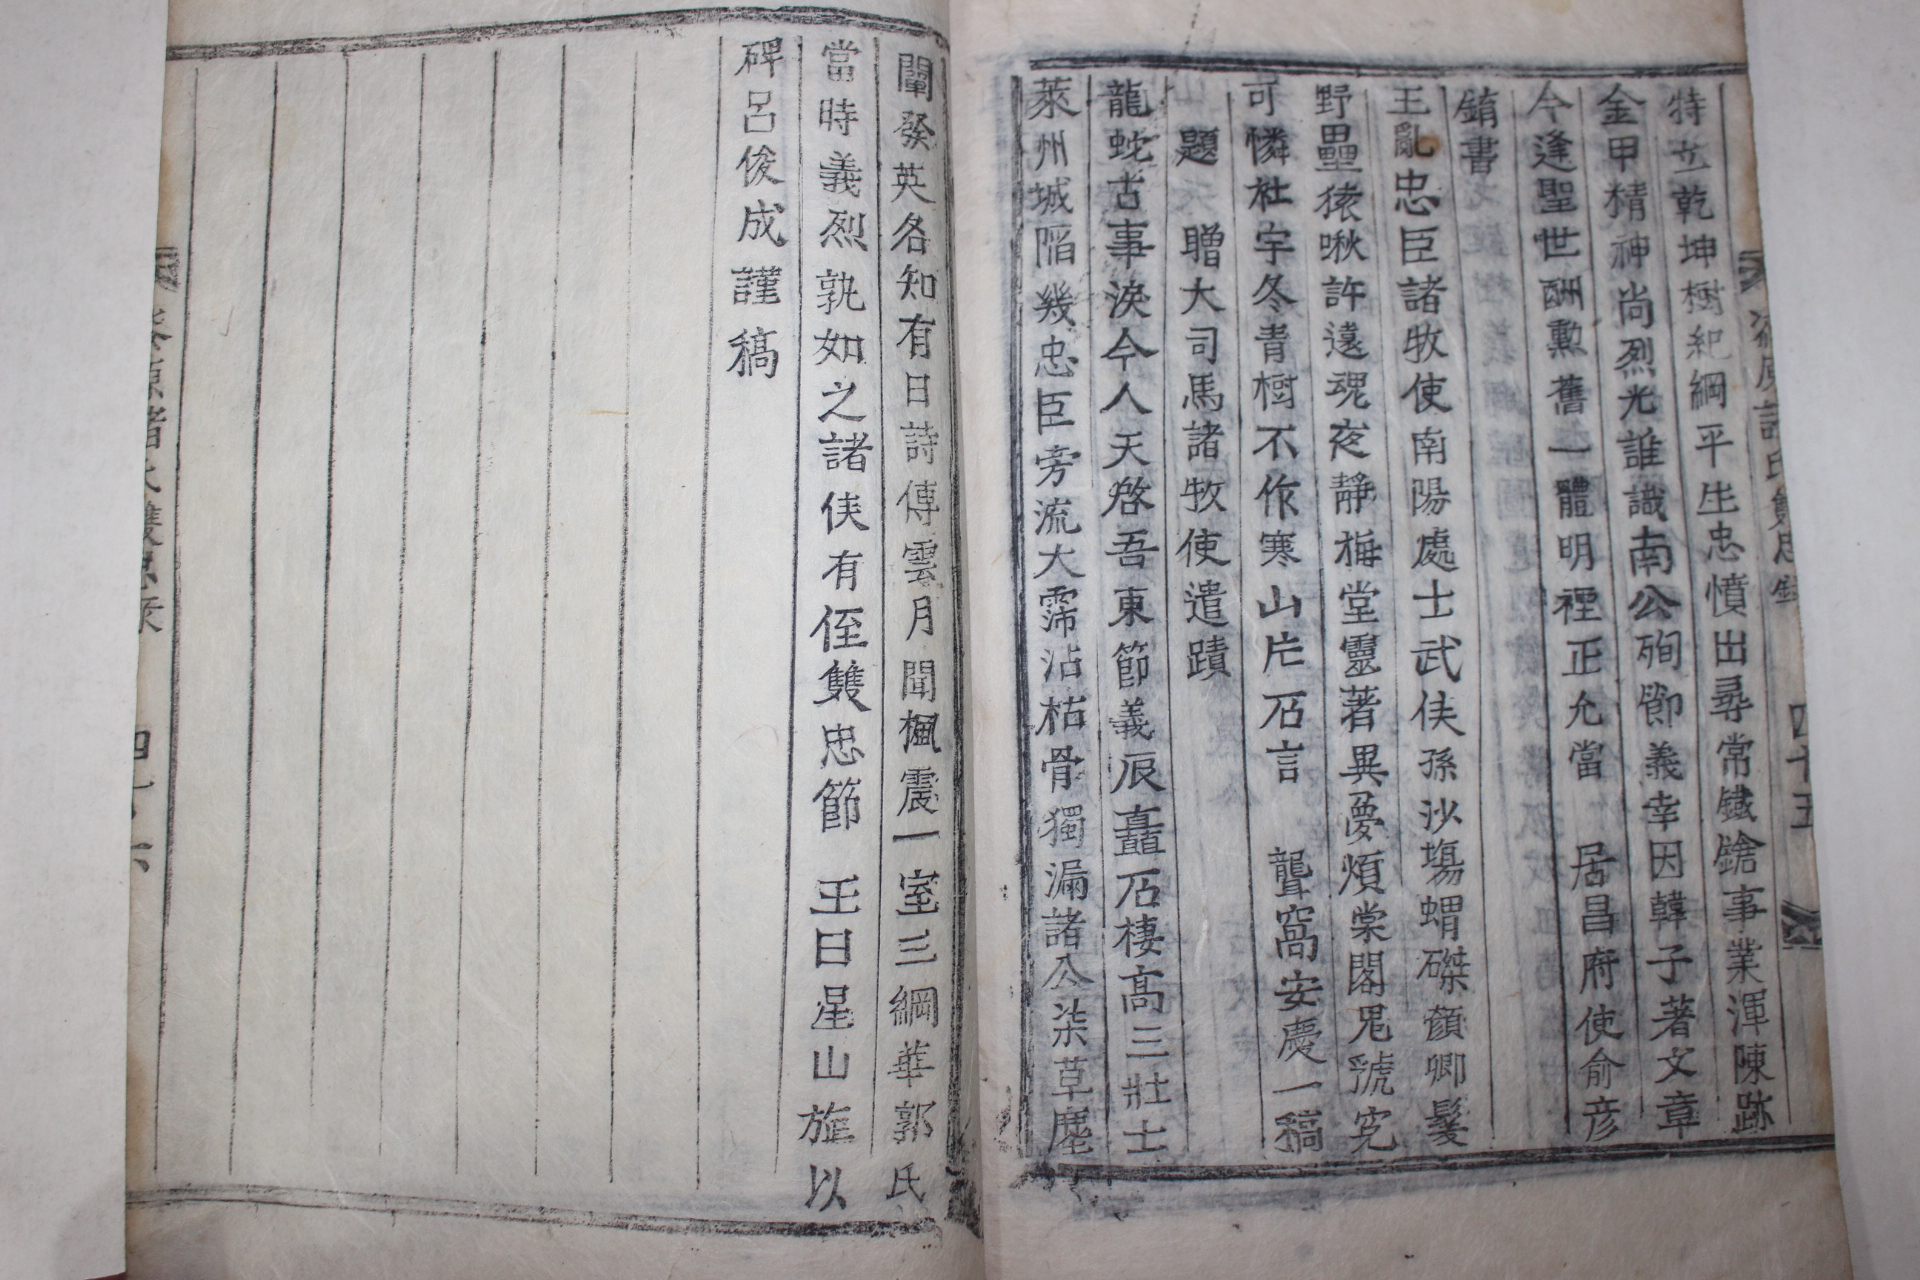 特立乾坤樹紀綱平生忠憤出尋常鐵鎗事業渾陳跡
金甲精神尚烈光誰識南公殉節義幸因韓子著文章
今逢聖世酬勳舊一體明禋正允當 居昌府使俞彦
銷書
王亂忠臣諸牧使南陽處士武侯孫沙塲蝟磔顔卿髮
野壘猿啾許遠魂夜靜梅堂靈著異夢煩棠閣鬼號寃
可憐杜宇冬青樹不作寒山片石言 聾窩安慶一稿
題 贈大司馬諸牧使遺蹟
龍蛇古事淚今人天啓吾東節義辰矗石棲高三壯士
萊州城陷幾忠臣旁流大霈沾枯骨獨漏諸公柒草塵
四十五
闡發英名知有日詩傳雲月聞楓震一室三綱華郭氏
當時義烈孰如之諸侠有侄雙忠節 王曰星山旌以
碑呂俊成謹稿